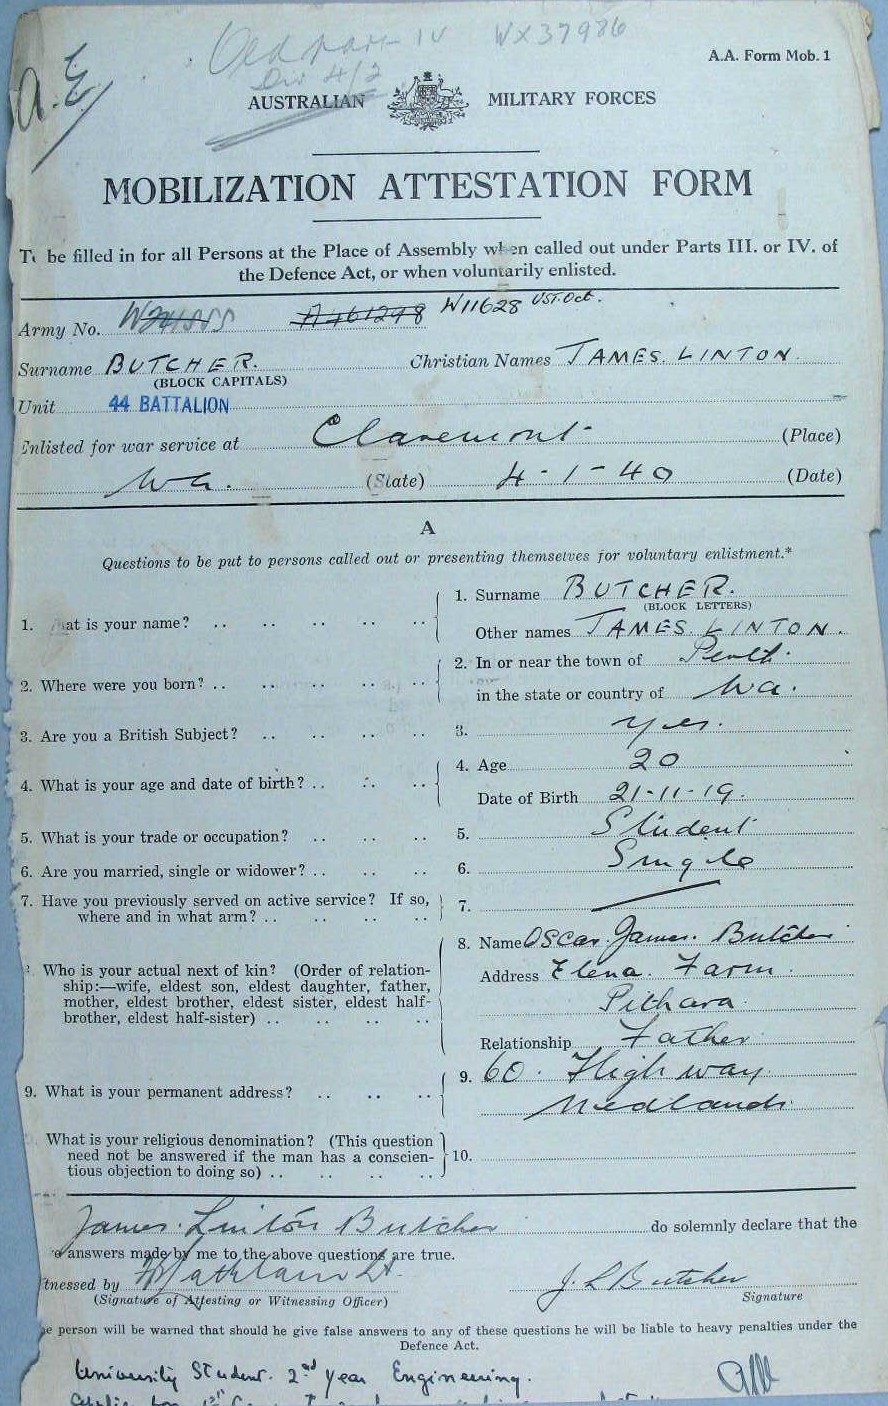 WX37986
A.A. Form Mob. 1
A.E.
AUSTRALIAN MILITARY FORCES
MOBILIZATION ATTESTATION FORM
To be filled in for all Persons at the Place of Assembly when called out under Parts III. or IV. of
the Defence Act, or when voluntarily enlisted.
Army No. A461298 W11628
Surname BUTCHER. Christian Names JAMES LINTON
(BLOCK CAPITALS)
Unit 44 BATTALION
Enlisted for war service at Claremont (Place)
Wa. (State) 4-1-40 (Date)
A
Questions to be put to persons called out or presenting themselves for voluntary enlistment.*
1. at is your name? .. .. .. .. .. 1. Surname BUTCHER.
(BLOCK LETTERS)
Other names JAMES LINTON.
2. Where were you born? .. .. .. .. .. 2. In or near the town of Perth.
in the state or country of Wa.
3. Are you a British Subject? .. .. .. .. 3. yes.
4. What is your age and date of birth? .. .. .. 4. Age 20
Date of Birth 21-11-19.
5. What is your trade or occupation? .. .. .. 5. Student
6. Are you married, single or widower? .. .. .. 6. Single
7. Have you previously served on active service? If so, 7.
where and in what arm? .. .. .. .. ..
8. Name Oscar James. Butcher
Who is your actual next of kin? (Order of relation-
ship:—wife, eldest son, eldest daughter, father,
mother, eldest brother, eldest sister, eldest half-
brother, eldest half-sister) .. .. .. ..
Address Elena. Farm.
Pithara.
Relationship Father
9. What is your permanent address? .. .. .. 9. 60. High way
Nedlands.
What is your religious denomination? (This question
need not be answered if the man has a conscien-
tious objection to doing so) .. .. .. .. 10.
James. Linton Butcher do solemnly declare that the
answers made by me to the above questions are true.
tnessed by J. L Butcher
(Signature of Attesting or Witnessing Officer) Signature
e person will be warned that should he give false answers to any of these questions he will be liable to heavy penalties under the
Defence Act.
University Student. 2nd year Engineering.